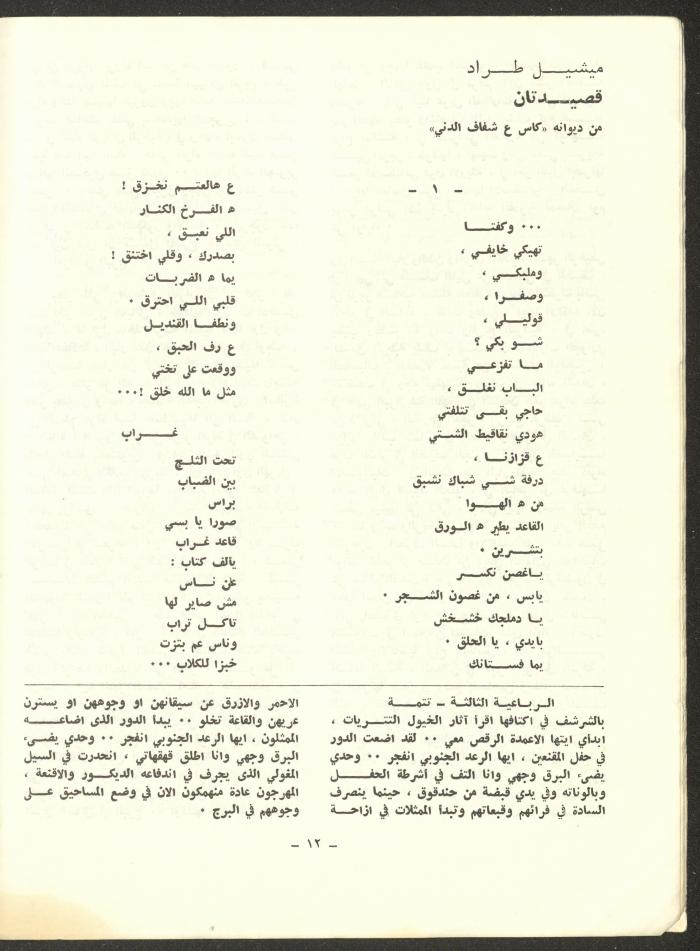 ميشيل طراد
قصيدتان
من ديوانه «كاس ع شفاف الدني»
- ١ -
... وكفتا
تهيكي خايفي ،
وملبكي ،
وصفرا ،
قوليلي ،
شو بكي ؟
ما تفزعي
الباب نغلق ،
حاجي بقى تتلفتي
هودي نقاقيط الشتي
ع قزازنا ،
درفة شي شباك نشبق
من ه الهوا
القاعد يطير ه الورق
بتشرين .
ياغصن نكسر
يابس ، من غصون الشجر .
يا دملجك خشخش
بايدي ، يا الحلق .
يما فستانك
ع هالعتم نخزق !
ه الفرخ الكنار
اللي نعبق ،
بصدرك ، وقلي اختنق !
يما ه الضربات
قلبي اللي احترق .
ونطفا القنديل
ع رف الحبق ،
ووقعت على تختي
مثل ما الله خلق !...
غراب
تحت الثلج
بين الضباب
براس
صورا يا بسي
قاعد غراب
يالف كتاب :
عن ناس
مش صاير لها
تاكل تراب
وناس عم بتزت
خبزا للكلاب ...
الرباعية الثالثة - تتمة
بالشرشف في اكتافها اقرأ آثار الخيول التتريات ،
ابدأي ايتها الاعمدة الرقص معي .. لقد اضعت الدور
في حفل المقنعين ، ايها الرعد الجنوبي انفجر .. وحدي
يضىء البرق وجهي وانا التف في أشرطة الحفل
وبالوناته وفي يدي قبضة من حندقوق ، حينما ينصرف
السادة في فرائهم وقبعاتهم وتبدأ الممثلات في ازاحة
الاحمر والازرق عن سيقانهن او وجوههن او يسترن
عريهن والقاعة تخلو .. يبدأ الدور الذى اضاعه
الممثلون ، ايها الرعد الجنوبي انفجر .. وحدي يضىء
البرق وجهي وانا اطلق قهقهاتي ، انحدرت في السيل
المغولي الذى يجرف في اندفاعه الديكور والاقنعة ،
المهرجون عادة منهمكون الان في وضع المساحيق على
وجوههم في البرج .
- ١٢ -